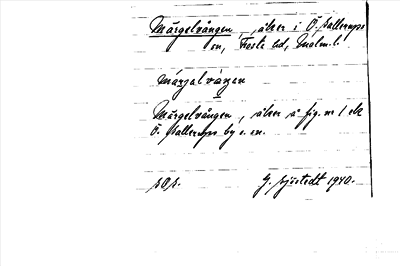 Märgelvången, åker i Ö. Vallerups
sn, Frosta hd, Malm. l.
märgalvåŋen
Märgelvången, åker å fig. nr 1 ekl
Ö. Vallerups by o. sn.
G. Sjöstedt 1940.